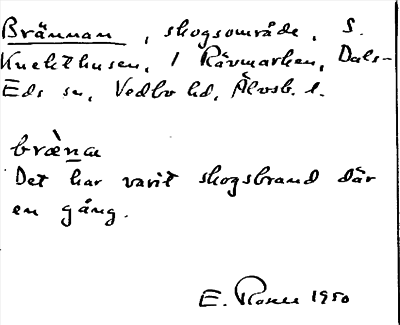 Brännan, skogsområde, S.
Knekthusen, 1 Rävmarken, Dals-
Eds sn, Vedbo hd, Älvsb. l.
bræ̀nа
Det har varit skogsbrand där
en gång.
E. Rosell 1950